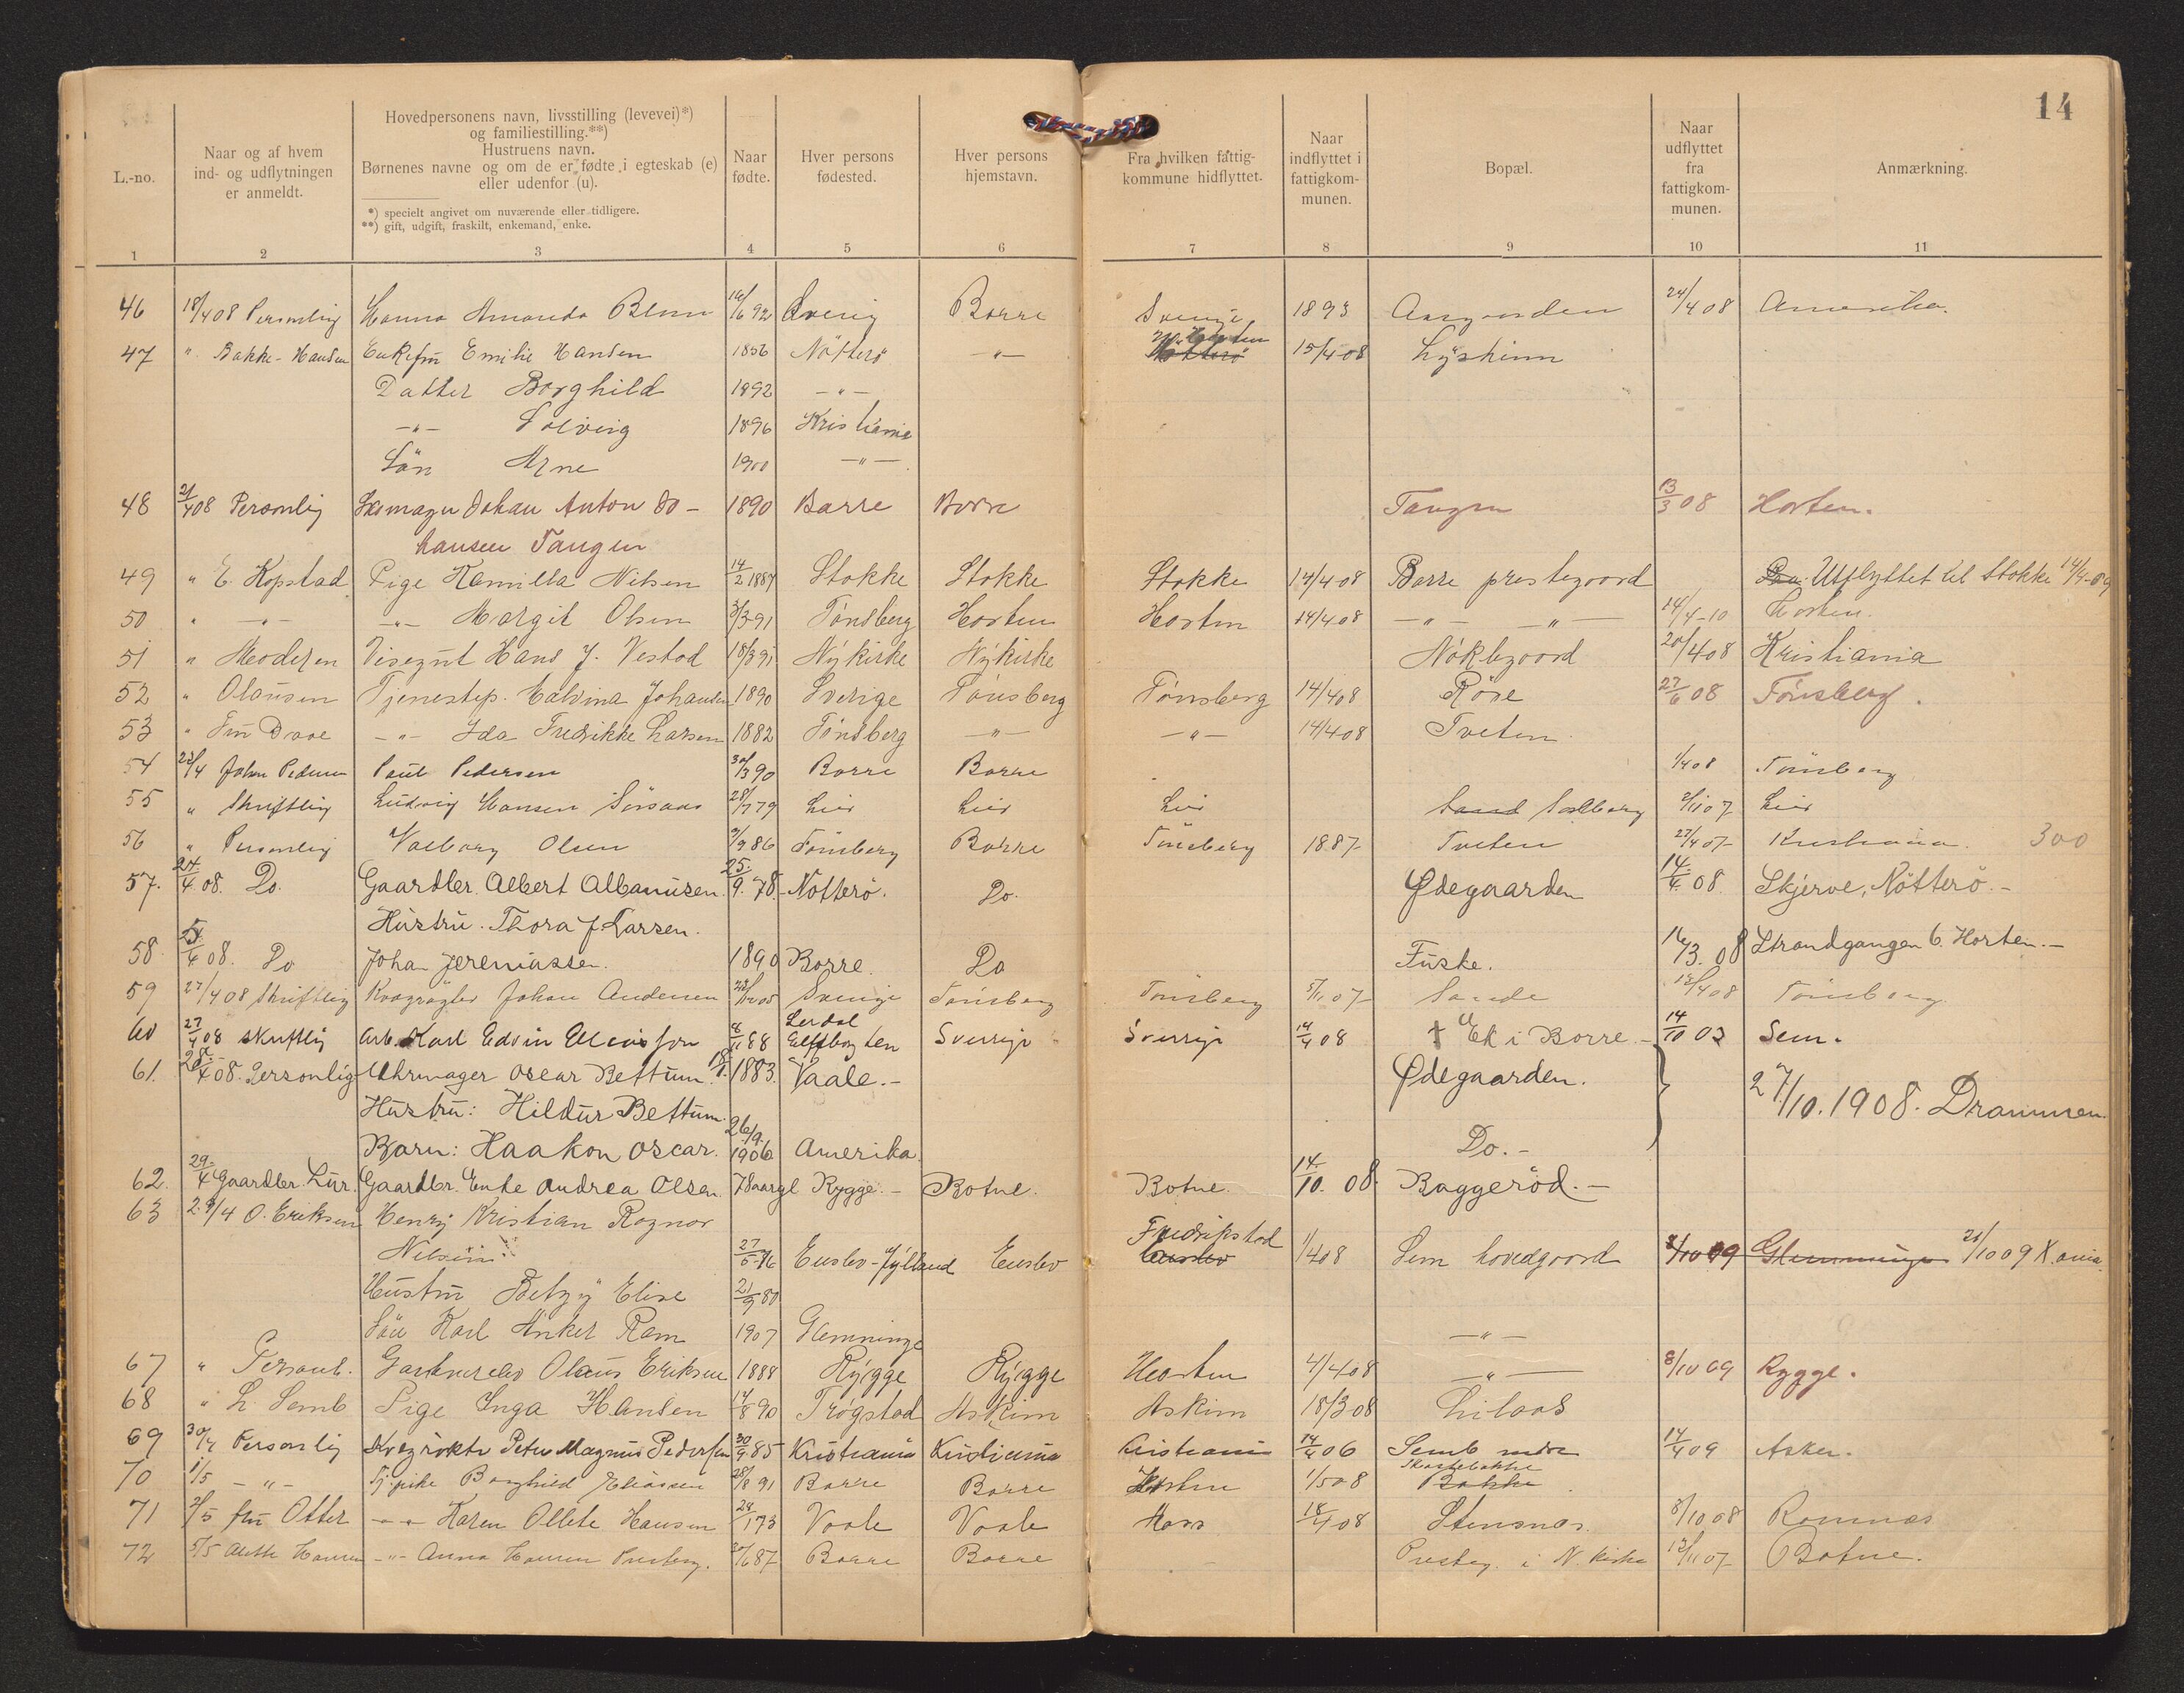 14
L.-no.
Naar og af hvem
ind- og udflytningen
er anmeldt.
Hovedpersonens navn, livsstilling (levevei)*)
og familiestilling.**)
Hustruens navn.
Børnenes navne og om de er fødte i egteskab (e)
eller udenfor (u).
*) specielt angivet om nuværende eller tidligere.
**) gift, udgift, fraskilt, enkemand, enke.
Naar
fødte.
Hver persons
fødested.
Hver persons
hjemstavn.
Fra hvilken fattig-
kommune hidflyttet.
Naar
indflyttet i
fattigkom-
munen.
Bopæl.
Naar
udflyttet
fra
fattigkom-
munen.
Anmærkning.
1 2 3 4 5 6 7 8 9 10 11
46 18/4 08 Personlig Hanna Amanda 16/6 92 Sverig Borre Sverige 1893 Aasgaarden 24/4 08 Amerika.
47 " Bakke-Hansen Enkefru Emilie Hansen 1856 Nötterö -"- 15/4-08
Datter Borghild 1892 -"-
-"- Solveig 1896 Kristiania
Sön Arne 1900 -"-
48 21/4 08 Personlig Johan Anton Jo- 1890 Borre Borre Tangen 13/3 08 Horten.
hansen Tangen
49 " E. Kopstad Pige Kamilla Nilsen 14/2 1887 Stokke Stokke Stokke 14/4-08 Borre prestegaard Utflyttet til Stokke 14/4-09
50 " -"- -"- Margit Olsen 3/3-91 Tönsberg Horten Horten 14/4 08 -"- -"- 14/4-10 Horten.
51 " Hans J. Vestad 18/3 91 Nÿkirke Nÿkirke 20/4 08 Kristiania
52 " Olaüsen Tjenestep. Johansen 1890 Sverige Tönsberg Tönsberg 14/4 08 Röre 27/6 08 Tönsberg.
53 " -"- Ida Fredrikke Larsen 1882 Tönsberg -"- -"- 14/4 08 Tveten
54 22/4 John Pedersen Paul Pedersen 30/3 90 Borre Borre 1/4 08 Tönsberg
55 " Skriftlig Ludvig Hansen Sörsaas 28/7 79 Lier Lier Lier Solberg 2/11 07 Lier
56 " Personlig Valborg Olsen 2/9 86 Tönsberg Borre Tönsberg 1887 Tveten 27/4 07 Kristiania. 300
57. 24/4. 08. Do. Gaardbr. Albert Albanüsen. 25/9. 78. Nötterö. Do. Ødegaarden 14/4. 08. Skjerve, Nötterö.-
Hüstrü. Thora J Larsen.
58. 25/4 08. Do Johan Jeremiassen. 1890 Borre. Do Füske. 16/3. 08 Strandgangen 6. Horten.-
59 27/4 08 Skriftlig Johan Andersen Sverige Tönsberg Tönsberg 5/11 07 Sande 12/4 08 Tönsberg
60 27/4 08 Skriftlig Arb. Karl Edvin 8/11 88 Lerdal Elfsborg len Sverrige Sverrige 14/4 08 Ek i Borre.- 14/10 08 Sem.
61. 28/4 08. Personlig Uhrmager Oscar Bettum. 18/1. 1883. Vaale.- Ødegaarden. 27/10. 1908. Drammen.
Hüstrü: Hildür Bettum.
Barn: Haakon Oscar. 26/9. 1906 Amerika. Do.-
62. 29/4 Gaardbr. Lür. Gaardbr. Enke Andrea Olsen. 78aargl Rygge.- Botne. Botne. 14/10. 08. Baggeröd.-
63 29/4 O. Eriksen Henrÿ Kristian Ragnar
Nilsen 27/5-76 Enslev-Jylland Enslev Fredrikstad Enslev 1/4 08 Sem hovedgaard 2/10 09 Glemminge 21/10 09 X.ania.
Hustru Betzÿ Elise 21/9 80
Sön Karl Anker Ram 1907 Glemminge -"-
67 " Personl. Olaus Eriksen 1888 Rÿgge Rÿgge Horten 4/4 08 -"- 8/10 09 Rygge.
68 " L. Semb Pige Inga Hansen 14/8 90 Trögstad Askim Askim 18/3 08 Liløas
69 30/4 Personlig Kvægrökter Peter Magnus Pedersen 30/9 85 Kristiania Kristiania Kristiania 14/4 06 Semb 14/4 09 Asker.
70 1/5 -"- Tj. pike Borghild Eliassen 28/8 91 Borre Borre Horten 1/5 08 Bakke
71 2/5 fru Otter -"- Karen Ollete Hansen Vaale Vaale Moss 14/4 08 Stensnæs. 8/10 08 Ramnæs
72 5/5 Hansen -"- Anna Hansen 27/6 87 Borre Borre Presteg. i N. kirke 12/11 07 Botne.